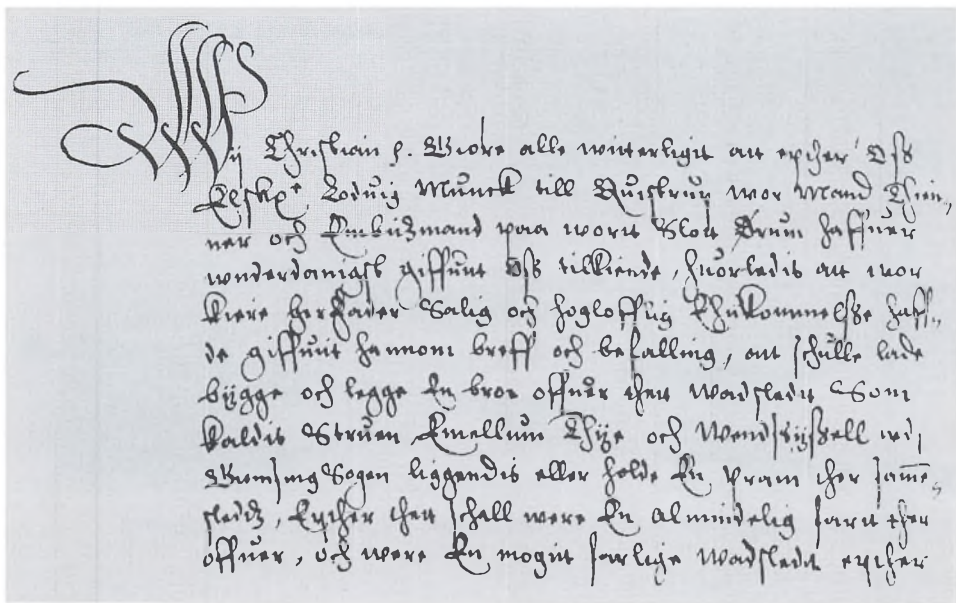 Wij Christian p. Giøre alle witterligit att epther Oss
Elskel. Lodvig Munck till Quistrup wor Mand Thien,,
ner och Embitzmand paa wortt Slott Ørum haffuer
wnderdanigst giffuit Oss tilkiende, huorledis att wor
kiere her Fader Salig och högloffuig Ehukommelsse haff,,
de giffuit hannom breff och befalling, att schulle lade
bygge och legge En broe offuer thett wadstedt Som
kaldis Struen Emellum Thye och Wendsyssell wd,
Sogen liggendis eller holde En pram ther samme,,
stedtz, Epther thett schall were En almindelig fartt ther
offuer, och were En mögit farlige wadstedt epther